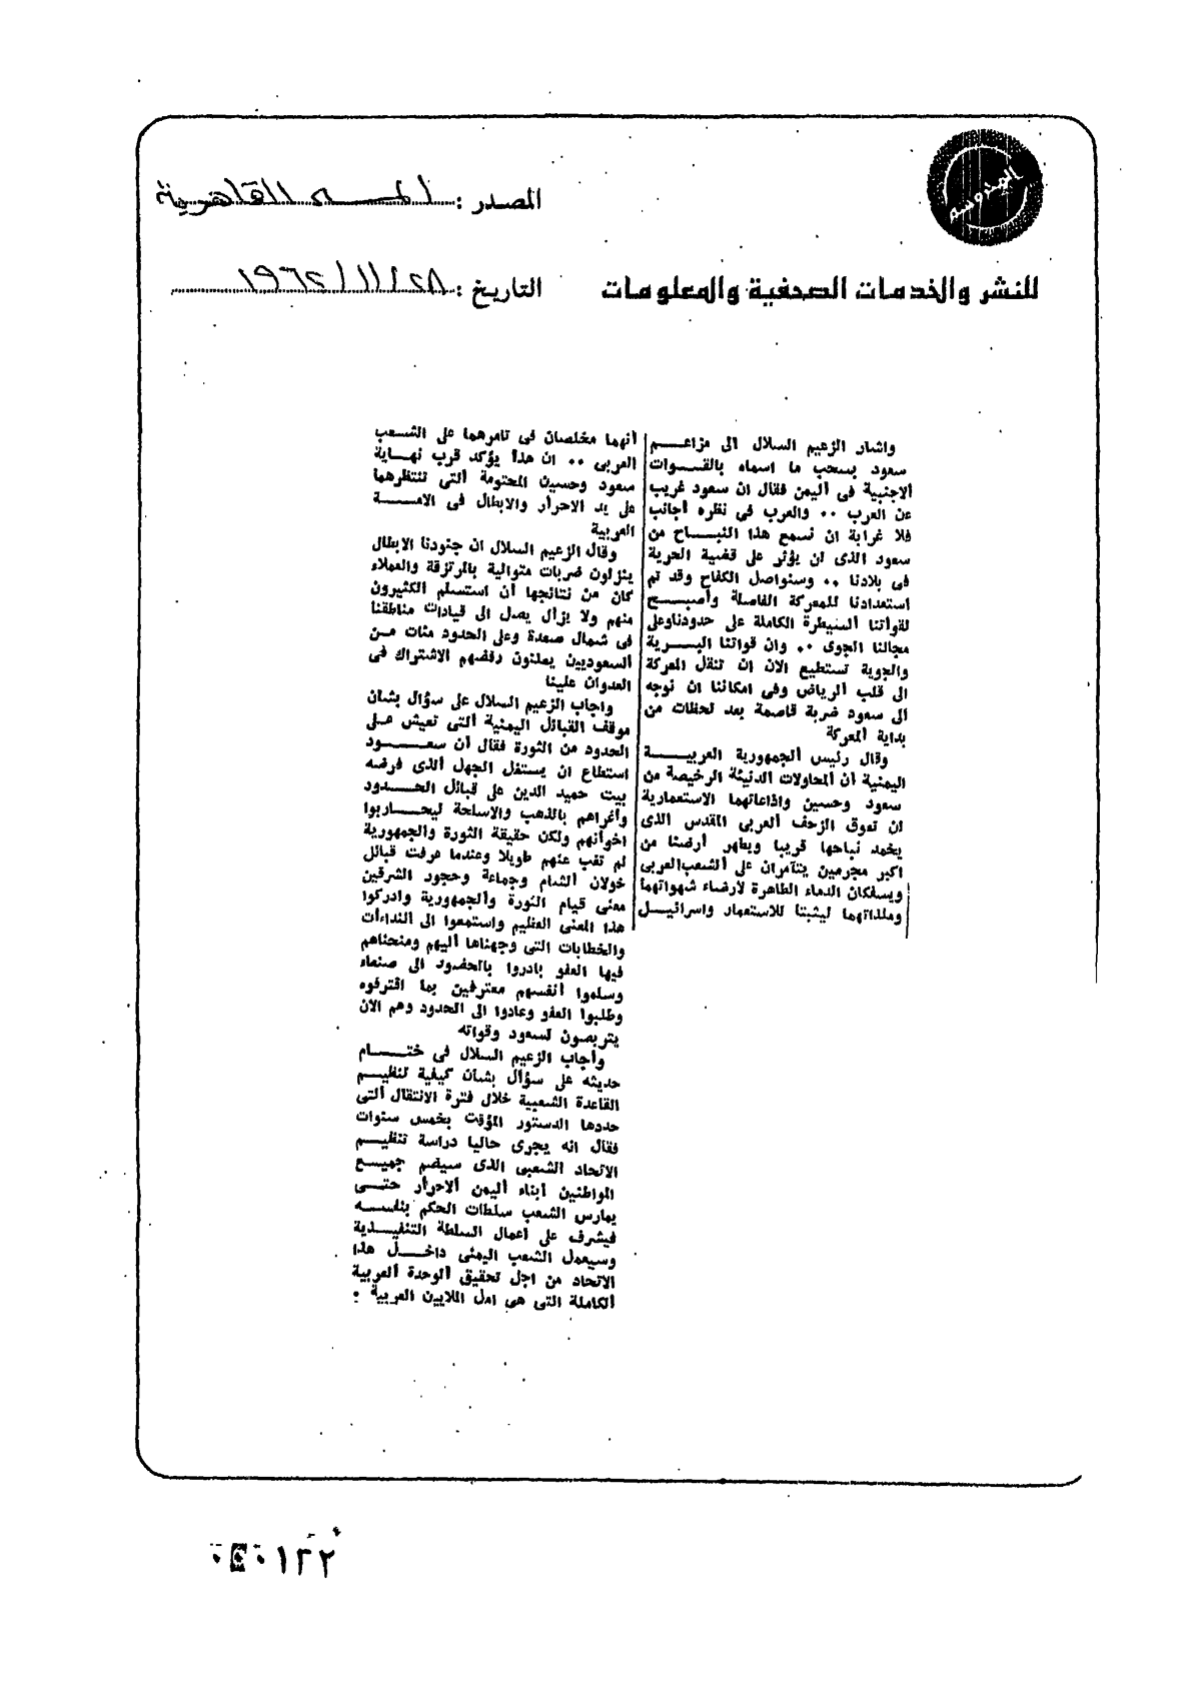 المصدر : المساء القاهرية
للنشر والخدمات الصحفية والمعلومات
التاريخ : ٢٨ / ١١ / ١٩٦٢
واشار الزعيم السلال الى مزاعم
سعود بسحب ما اسماه بالقوات
الاجنبية فى اليمن فقال ان سعود غريب
عن العرب .. والعرب فى نظره أجانب
فلا غرابة ان نسمع هذا النباح من
سعود الذى لن يؤثر على قضية الحرية
فى بلادنا .. وسنواصل الكفاح وقد تم
استعدادنا للمعركة الفاصلة وأصبح
لقواتنا السيطرة الكاملة على حدودناوعلى
مجالنا الجوى .. وان قواتنا البرية
والجوية تستطيع الان ان تنقل المعركة
الى قلب الرياض وفى امكاننا ان نوجه
الى سعود ضربة قاصمة بعد لحظات من
بداية المعركة
وقال رئيس الجمهورية العربية
اليمنية أن المحاولات الدنيئة الرخيصة من
سعود وحسين واذاعاتهما الاستعمارية
لن تعوق الزحف العربى المقدس الذى
يخمد نباحها قريبا ويطهر أرضنا من
اكبر مجرمين يتآمران على الشعب العربى
ويسفكان الدماء الطاهرة لارضاء شهواتهما
وملذاتهما ليثبتا للاستعمار واسرائيل
أنهما مخلصان فى تامرهما على الشعب
العربى .. ان هذا يؤكد قرب نهاية
سعود وحسين المحتومة التى تنتظرهما
على يد الاحرار والابطال فى الامة
العربية
وقال الزعيم السلال ان جنودنا الابطال
ينزلون ضربات متوالية بالمرتزقة والعملاء
كان من نتائجها أن استسلم الكثيرون
منهم ولا يزال يصل الى قيادات مناطقنا
فى شمال صعدة وعلى الحدود مئات من
السعوديين يعلنون رفضهم الاشتراك فى
العدوان علينا
واجاب الزعيم السلال على سؤال بشأن
موقف القبائل اليمنية التى تعيش على
الحدود من الثورة فقال أن سعود
استطاع ان يستغل الجهل الذى فرضه
بيت حميد الدين على قبائل الحدود
وأغراهم بالذهب والاسلحة ليحاربوا
اخوانهم ولكن حقيقة الثورة والجمهورية
لم تغب عنهم طويلا وعندما عرفت قبائل
خولان الشام وجماعة وحجور الشرقين
معنى قيام الثورة والجمهورية وادركوا
هذا المعنى العظيم واستمعوا الى النداءات
والخطابات التى وجهناها اليهم ومنحناهم
فيها العفو بادروا بالحضور الى صنعاء
وسلموا أنفسهم معترفين بما اقترفوه
وطلبوا العفو وعادوا الى الحدود وهم الان
يتربصون لسعود وقواته
وأجاب الزعيم السلال فى ختام
حديثه على سؤال بشأن كيفية تنظيم
القاعدة الشعبية خلال فترة الانتقال التى
حددها الدستور المؤقت بخمس سنوات
فقال انه يجرى حاليا دراسة تنظيم
الاتحاد الشعبى الذى سيضم جميع
المواطنين أبناء اليمن الاحرار حتى
يمارس الشعب سلطات الحكم بنفسه
فيشرف على أعمال السلطة التنفيذية
وسيعمل الشعب اليمنى داخل هذا
الاتحاد من اجل تحقيق الوحدة العربية
الكاملة التى هى امل الملايين العربية .